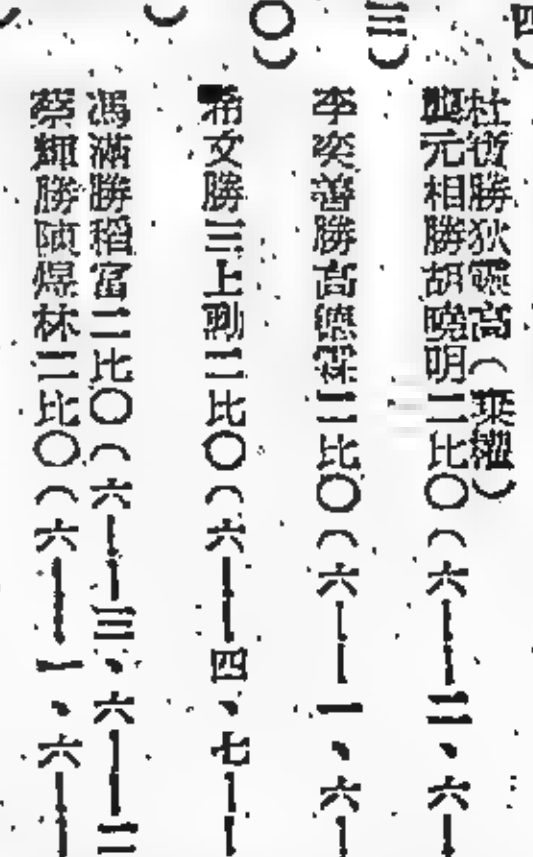 四）
杜衡勝狄靈高（棄權）
元相勝胡曉明二比〇（六——二、六—
三）
李奕善勝高德霖二比〇（六——一、六—
〇）
希文勝三上勛二比〇（六——四、七——
）
馮滿勝稻富二比〇（六——三、六——二
蔡輝勝陳煜林二比〇（六——一、六——